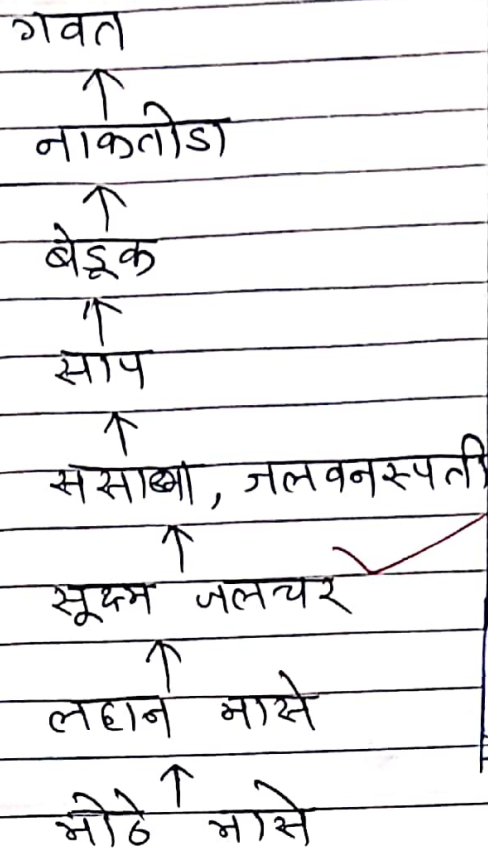 गवत
↑
नाकतोडा
↑
बेडूक
↑
साप
↑
, जलवनस्पती
↑
सूक्ष्म जलचर
↑
लहान मासे
↑
मोठे मासे